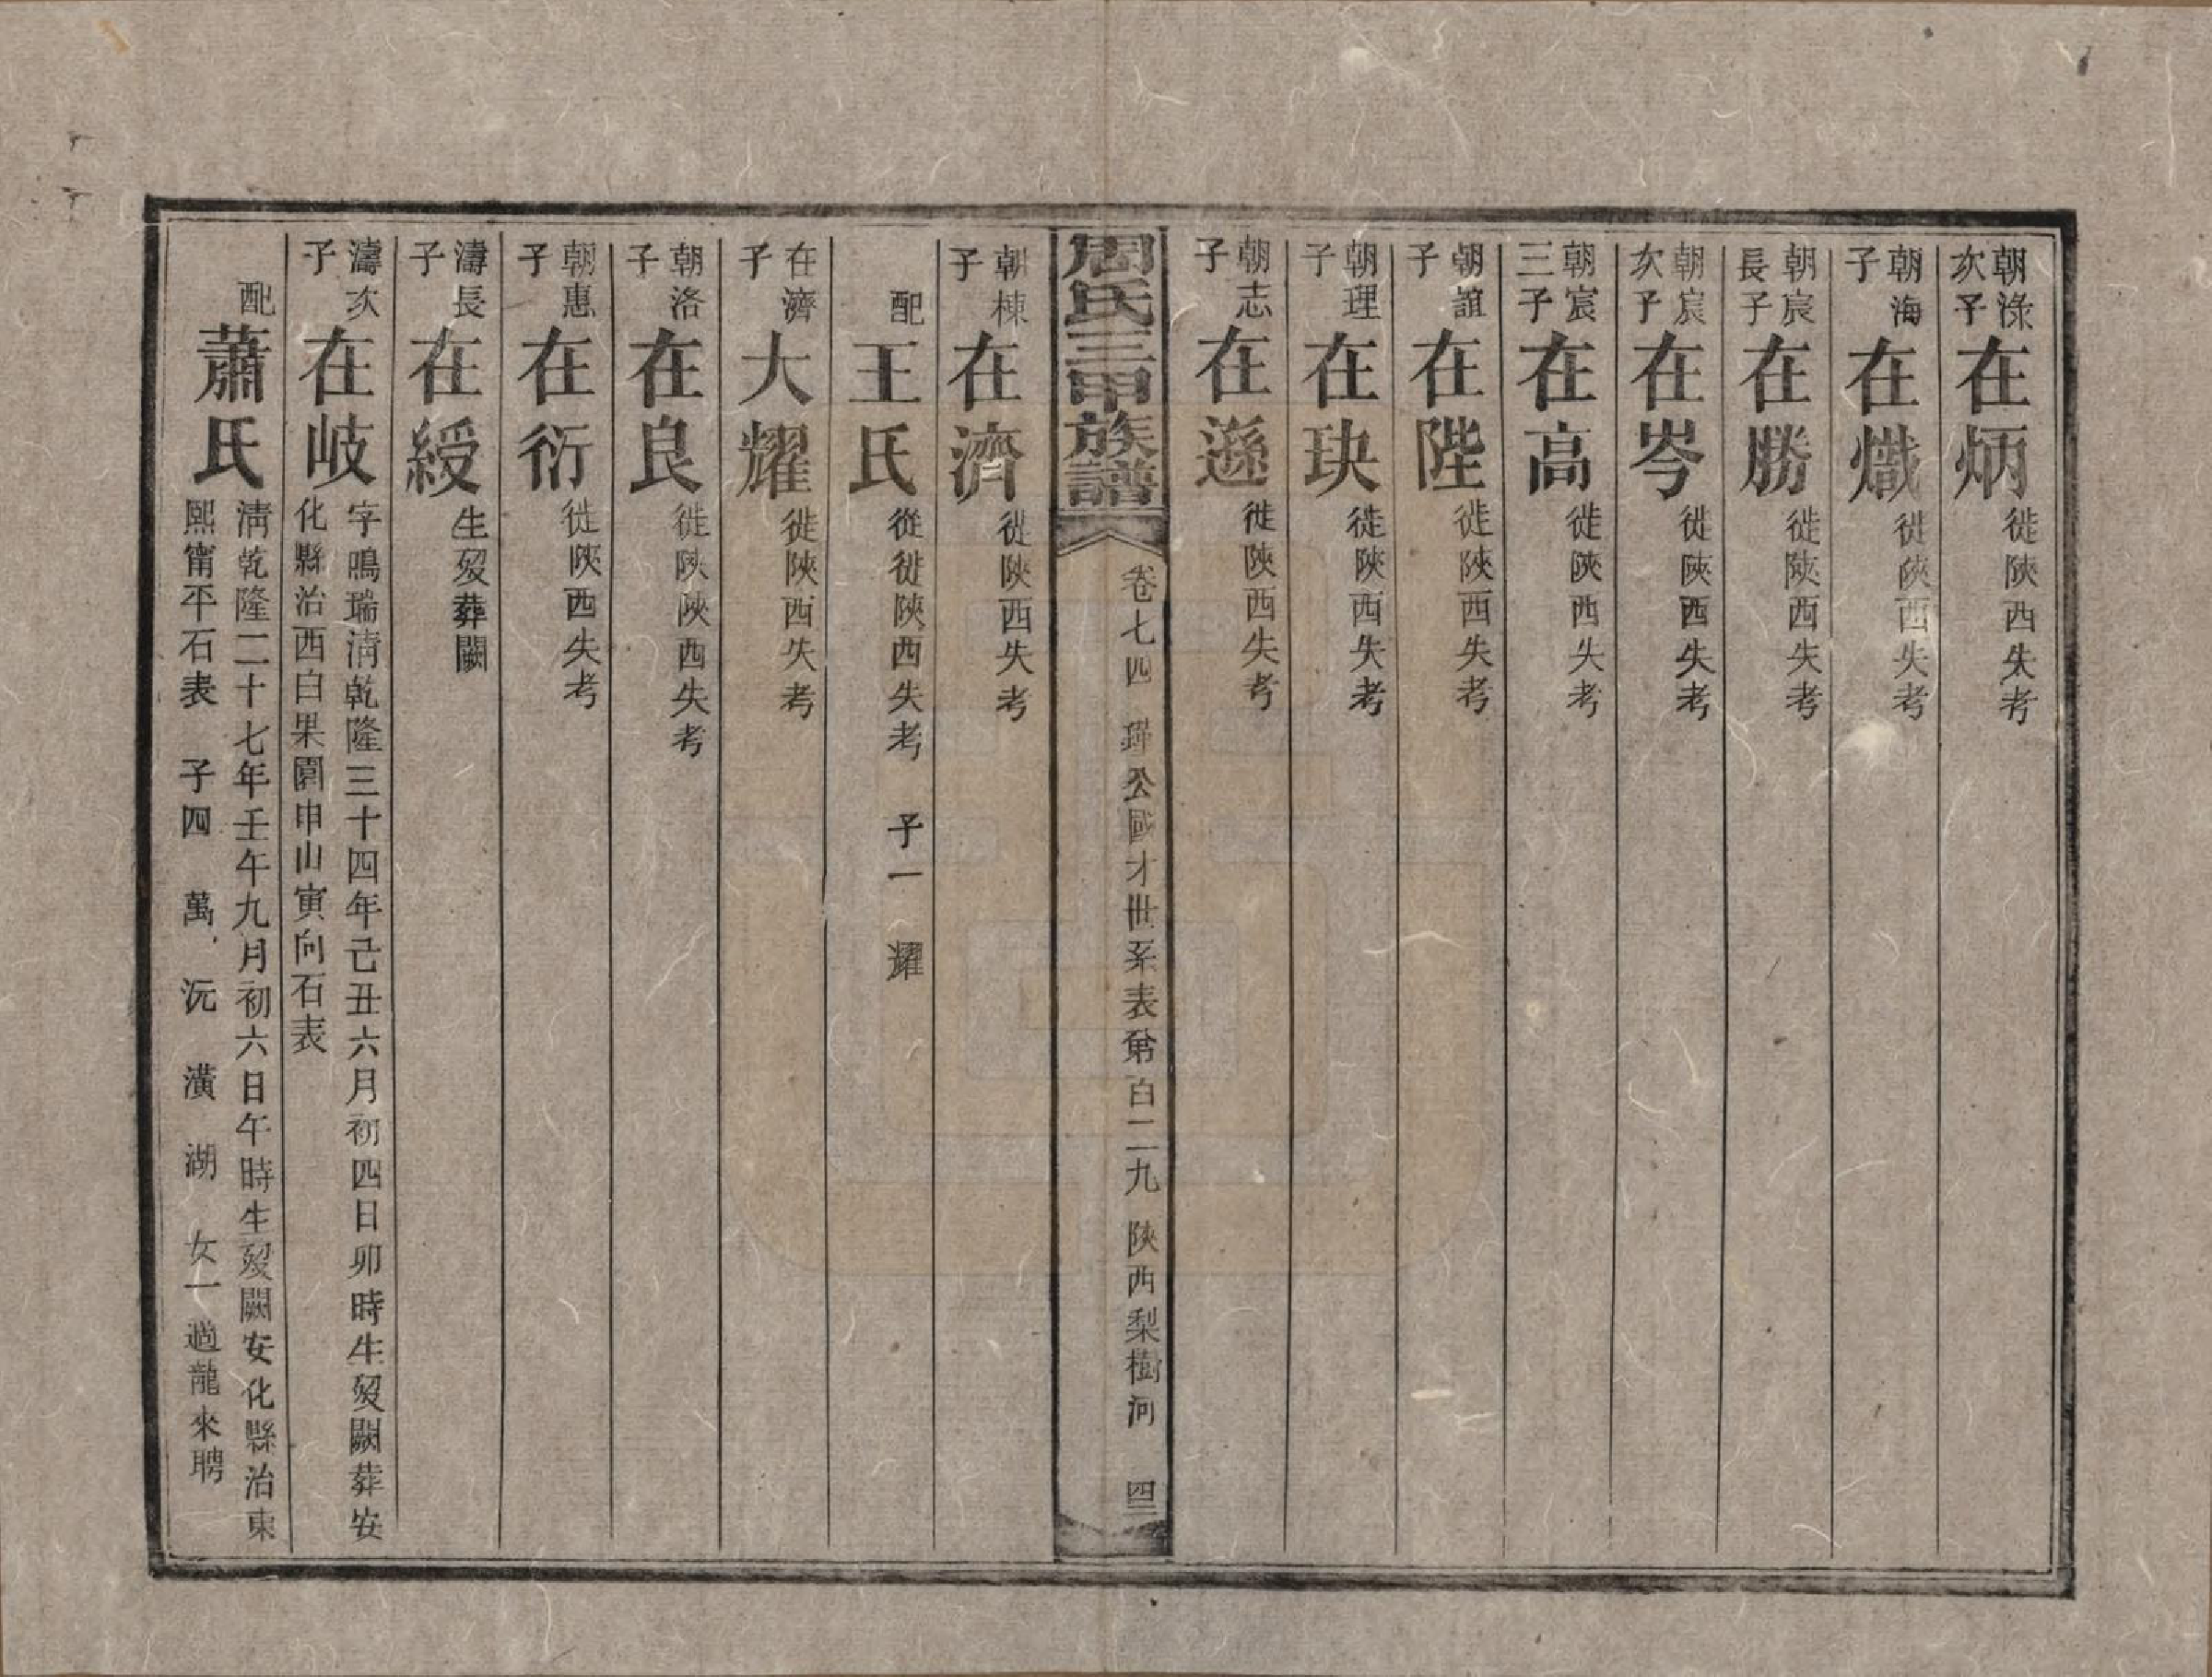 朝淥次子 在炳 徙陝西失考
朝海子 在熾 徙陝西失考
朝宸長子 在勝 徙陝西失考
朝宸次子 在岑 徙陝西失考
朝宸三子 在高 徙陝西失考
朝誼子 在陛 徙陝西失考
朝理子 在玦 徙陝西失考
朝志子 在遜 徙陝西失考
周氏三甲族譜 卷七四 公國才世系表第百二九 陝西梨樹河 四三
朝棟子 在濟 徙陝西失考
配 王氏 從徙陝西失考 子一 耀
在濟子 大耀 徙陝西失考
朝洛子 在良 徙陝陝西失考
朝惠子 在衍 徙陝西失考
濤長子 在綬 生歿葬闕
濤次子 在岐 字鳴瑞清乾隆三十四年己丑六月初四日卯時生歿闕葬安
化縣治西白果園申山寅向石表
配 蕭氏 清乾隆二十七年壬午九月初六日午時生歿闕安化縣治東
熙甯平石表 子四 萬 沅 潢 湖 女一適龍來聘